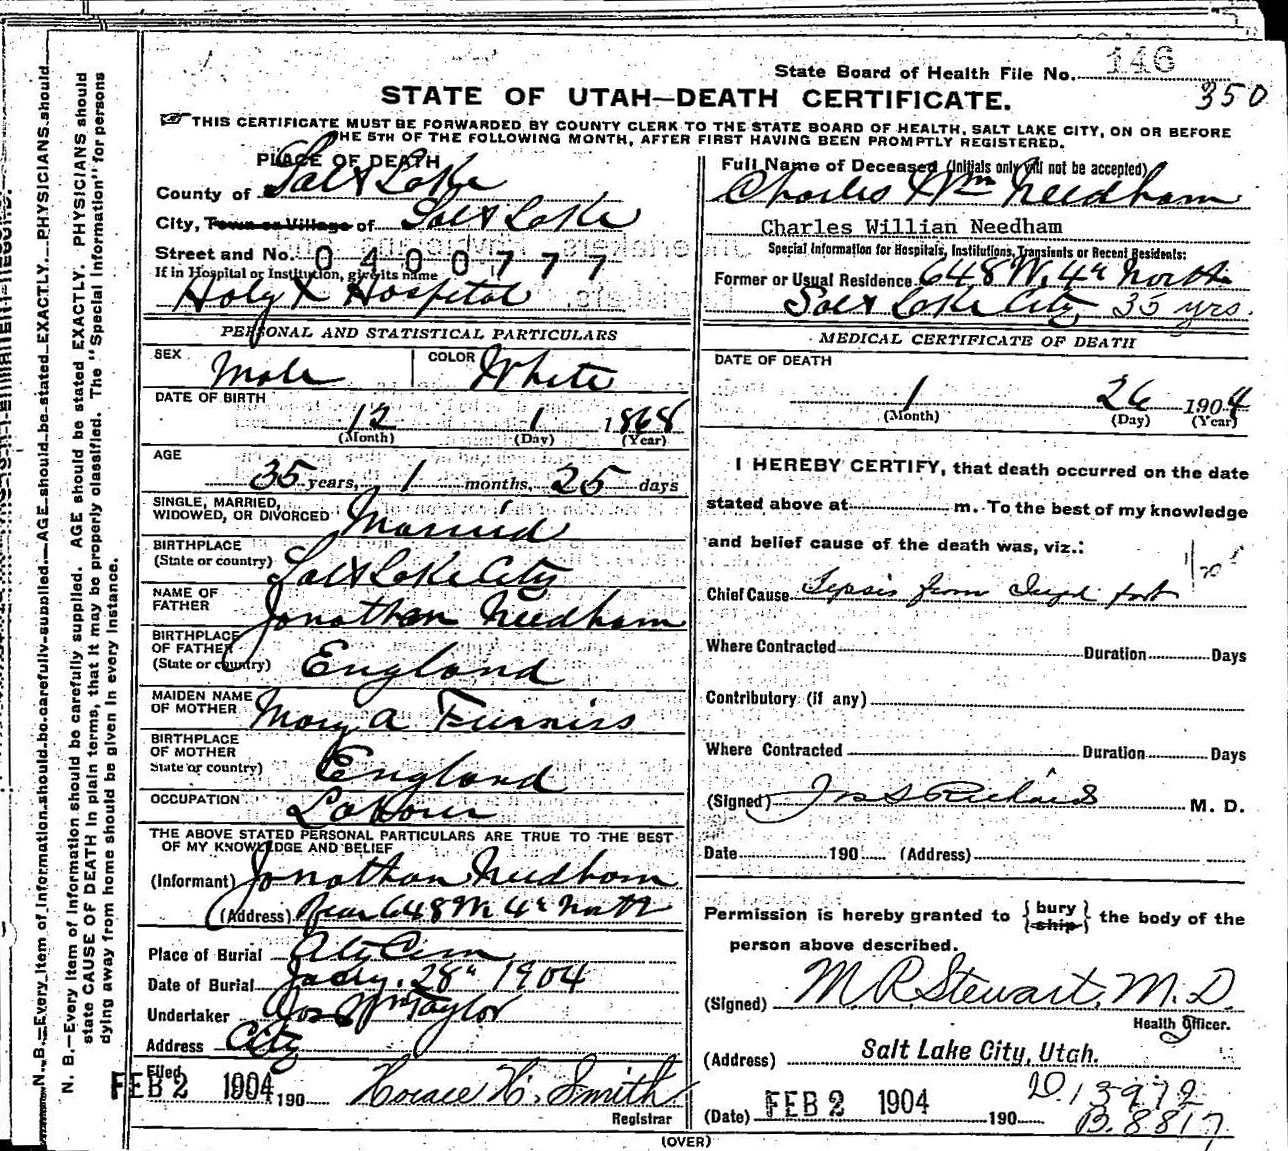 State Board of Health File No. 146
350
STATE OF UTAH—DEATH CERTIFICATE.
THIS CERTIFICATE MUST BE FORWARDED BY COUNTY CLERK TO THE STATE BOARD OF HEALTH, SALT LAKE CITY, ON OR BEFORE
THE 5TH OF THE FOLLOWING MONTH, AFTER FIRST HAVING BEEN PROMPTLY REGISTERED.
PLACE OF DEATH
County of Salt Lake
City, Town or Village of Salt Lake
Street and No. 0400777
If in Hospital or Institution, give its name
Holy X Hospital
PERSONAL AND STATISTICAL PARTICULARS
SEX Male COLOR White
DATE OF BIRTH
12 1 1868
(Month) (Day) (Year)
AGE
35 years, 1 months, 25 days
SINGLE, MARRIED,
WIDOWED, OR DIVORCED Married
BIRTHPLACE
(State or country) Salt Lake City
NAME OF
FATHER Jonathan Needham
BIRTHPLACE
OF FATHER
(State or country) England
MAIDEN NAME
OF MOTHER Mary A Furniss
BIRTHPLACE
OF MOTHER
State or country) England
OCCUPATION Labour
THE ABOVE STATED PERSONAL PARTICULARS ARE TRUE TO THE BEST
OF MY KNOWLEDGE AND BELIEF
(Informant) Jonathan Needham
(Address) Rear 648 W 4th North
Place of Burial City Cem
Date of Burial Jany. 28th 1904
Undertaker Jos Wm Taylor
Address City
Filed
FEB 2 1904 190 Horace H. Smith
Registrar
Full Name of Deceased (Initials only will not be accepted)
Charles Wm Needham
Charles Willian Needham
Special Information for Hospitals, Institutions, Transients or Recent Residents:
Former or Usual Residence 648 W. 4th North
Salt Lake City 35 yrs.
MEDICAL CERTIFICATE OF DEATH
DATE OF DEATH
1 26 1904
(Month) (Day) (Year)
I HEREBY CERTIFY, that death occurred on the date
stated above at m. To the best of my knowledge
and belief cause of the death was, viz.:
Chief Cause Sepsis from
Where Contracted Duration Days
Contributory (if any)
Where Contracted Duration Days
(Signed) Jos S Richards M. D.
Date 190 (Address)
Permission is hereby granted to {bury ship} the body of the
person above described.
(Signed) M R Stewart, M. D.
Health Officer.
(Address) Salt Lake City, Utah.
D. 13972
(Date) FEB 2 1904 190
B. 8817
(OVER)
N. B.—Every item of information should be carefully supplied. AGE should be stated EXACTLY. PHYSICIANS should
N. B.—Every item of information should be carefully supplied. AGE should be stated EXACTLY. PHYSICIANS should
state CAUSE OF DEATH in plain terms, that it may be properly classified. The "Special Information" for persons
dying away from home should be given in every instance.